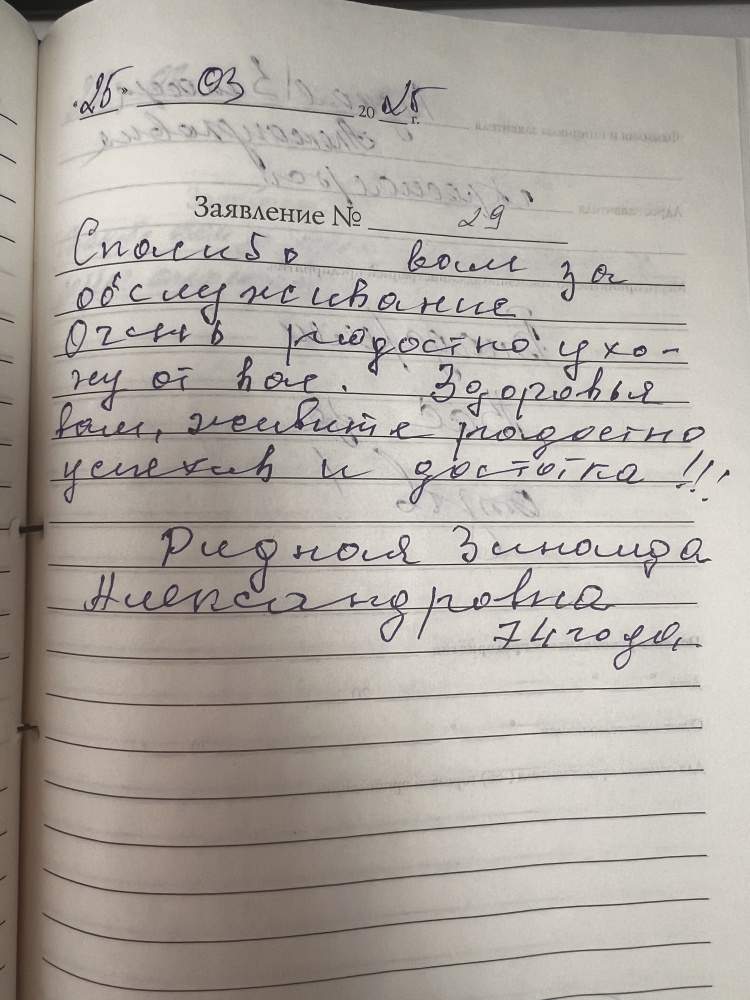 "25" 03 2025 г.
Заявление № 29
Спасибо вам за
обслуживание.
Очень радостно ухо-
жу от вас. Здоровья
вам, живите радостно
успехив и достотка!!!
Ридная Зинаида
Александровна
74 года.